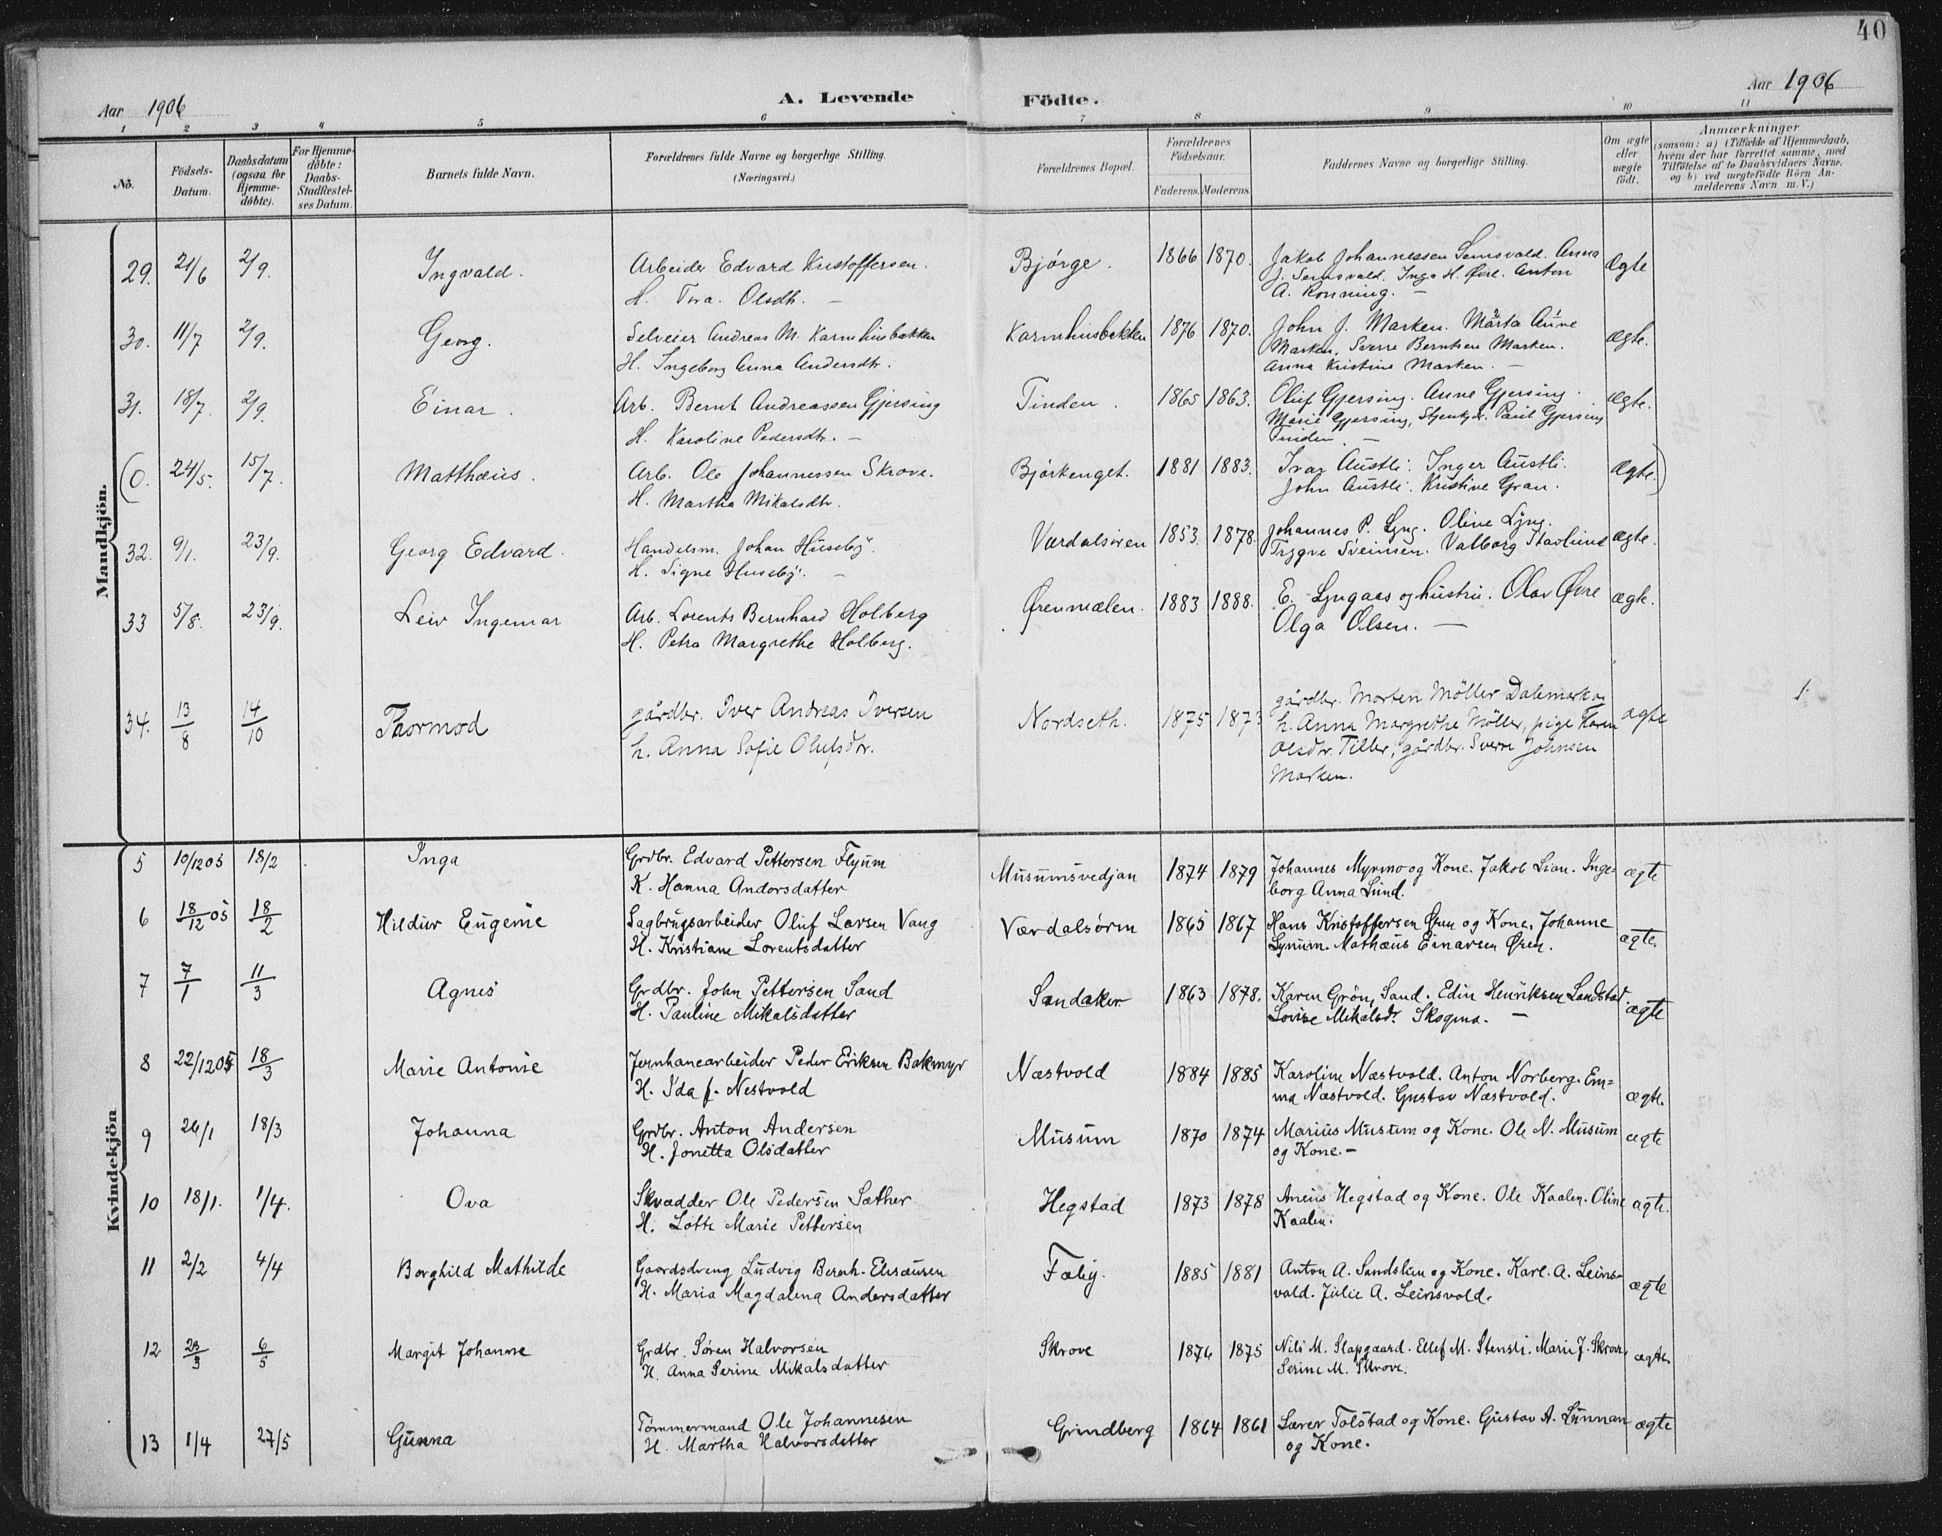 40
Aar 1906
A. Levende Födte.
Aar 1906
1 2 3 4 5 6 7 8 9 10 11
No.
Födsels-Datum.
Daabsdatum (ogsaa for Hjemmedöbte).
For Hjemmedöbte: Daabs-Stadfæstelses Datum.
Barnets fulde Navn.
Forældrenes fulde Navne og borgerlige Stilling. (Næringsvei.)
Forældrenes Bopæl.
Forældrenes Födselsaar.
Faderens. Moderens.
Faddernes Navne og borgerlige Stilling.
Om ægte eller uægte födt.
Anmærkninger
(saasom: a) i Tilfælde af Hjemmedaab, hvem der har forrettet samme, med Tilföielse af to Daabsvidners Navne, og b) ved uægtefödte Börn Anmelderens Navn m. V.)
Mandkjön.
29. 21/6 2/9. Ingvald. Arbeider Edvard Kristoffersen. Bjørge. 1866 1870. Jakob Johannessen Semsvald. Anna ægte
H. Tora. Olsdtr. — J. Semsvald. Inga H. Øvre. Anton
A. Rønning. —
30. 11/7 2/9. Georg. Selveier Andreas M. Karmhusbakken Karmhusbakken 1876 1870. John J. Marken. Märta Aune ægte.
H. Ingeborg Anna Andersdtr. Marken. Sverre Berntsen Marken.
Anna Kristine Marken. —
31. 18/7. 2/9. Einar. Arb. Bernt Andreassen Gjersing Tinden. 1865 1863. Oluf Gjersing. Anne Gjersing. ægte.
H. Karoline Pedersdtr. — Marie Gjersing, Paul Gjersing
Tinden. —
(0. 24/5. 15/7. Matthæus. Arb. Ole Johannessen Skrove. Bjørkenget. 1881 1883. Ivar Austli. Inger Austli. ægte.)
H. Martha Mikalsdtr. John Austli. Kristine Gran.
32. 9/1. 23/9. Georg Edvard. Handelsm. Johan Huseby. Værdalsøren 1853. 1878. Johannes P. Lyng. Oline Lyng. ægte.
H. Signe Huseby. — Trygve Sveinsen. Valborg Stavlund
33 5/8. 23/9. Leiv Ingemar Arb. Lorents Bernhard Holberg Ørenmælen. 1883 1888. E. Lyngaas og hustru. Olav Øvre ægte.
H. Petra Margrethe Holberg. Olga Olsen. —
34. 13/8 14/10 Thormod gårdbr. Iver Andreas Iversen Nordseth. 1875 1873 gårdbr. Morten Möller Dalemark og ægte 1.
h. Anna Sofie Olufsdtr. h. Anna Margrethe Möller, pige Karen
Olsdtr. Tiller, gårdbr. Sverre Johnsen
Marken.
Kvindekjön.
5 10/12 05 18/2 Inga Grdbr. Edvard Pettersen Flyum Musumsvedjan 1874 1879 Johannes Myrmo og Kone. Jakob Lian. Inge- ægte
K. Hanna Andorsdatter borg Anna Lund.
6 18/12 05 18/2 Hildur Eugenie Sagbrugsarbeider Oluf Larsen Vang Værdalsøren 1865 1867 Hans Kristoffersen Øren og Kone. Johanne ægte.
H. Kristiane Lorentsdatter Lynum. Mathæus Einarsen Øren.
7 7/1 11/3 Agnes Grdbr. John Pettersen Sand Sandaker 1863 1878. Karen Grön, Sand. Edin Henriksen Landstad. ægte
H. Pauline Mikalsdatter Lovise Mikalsdr. Skogmo. —
8 22/12 05 18/3 Marie Antonie Jernbanearbeider Peder Eriksen Bakmyr Næstvold 1884 1885 Karoline Næstvold. Anton Norberg. Em- ægte.
H. Ida J. Nestvold ma Næstvold. Gustav Næstvold.
9 26/1 18/3 Johanna Grdbr. Anton Andersen Musum 1870 1874 Marius Musum og Kone. Ole N. Musum ægte
H. Jonetta Olsdatter og Kone. —
10 18/1. 1/4. Ova Skrædder Ole Pedersen Sæther Hegstad 1873 1878 Aneus Hegstad og Kone. Ole Kaalen. Oline ægte.
H. Lotte Marie Pettersen Kaalen.
11 2/2 4/4 Borghild Mathilde Gaardsdreng Ludvig Bernh. Elisæusen Fæby. 1885 1881 Anton A. Sandslien og Kone. Karl. A. Leins- ægte
H. Maria Magdalena Andersdatter vold. Julie A. Leinsvold.
12 23/3 6/5 Margit Johanne Grdbr. Søren Halvorsen Skrove 1876 1875 Nils M. Slapgaard. Ellef M. Stensli. Marie J. Skrove. ægte.
H. Anna Serine Mikalsdatter Serine M. Skrove.
13 1/4 27/5 Gunna Tømmermand Ole Johannesen Grindberg 1864 1861 Lærer Tolstad og Kone. Gustav A. Lunnan ægte
H. Martha Halvorsdatter og Kone.